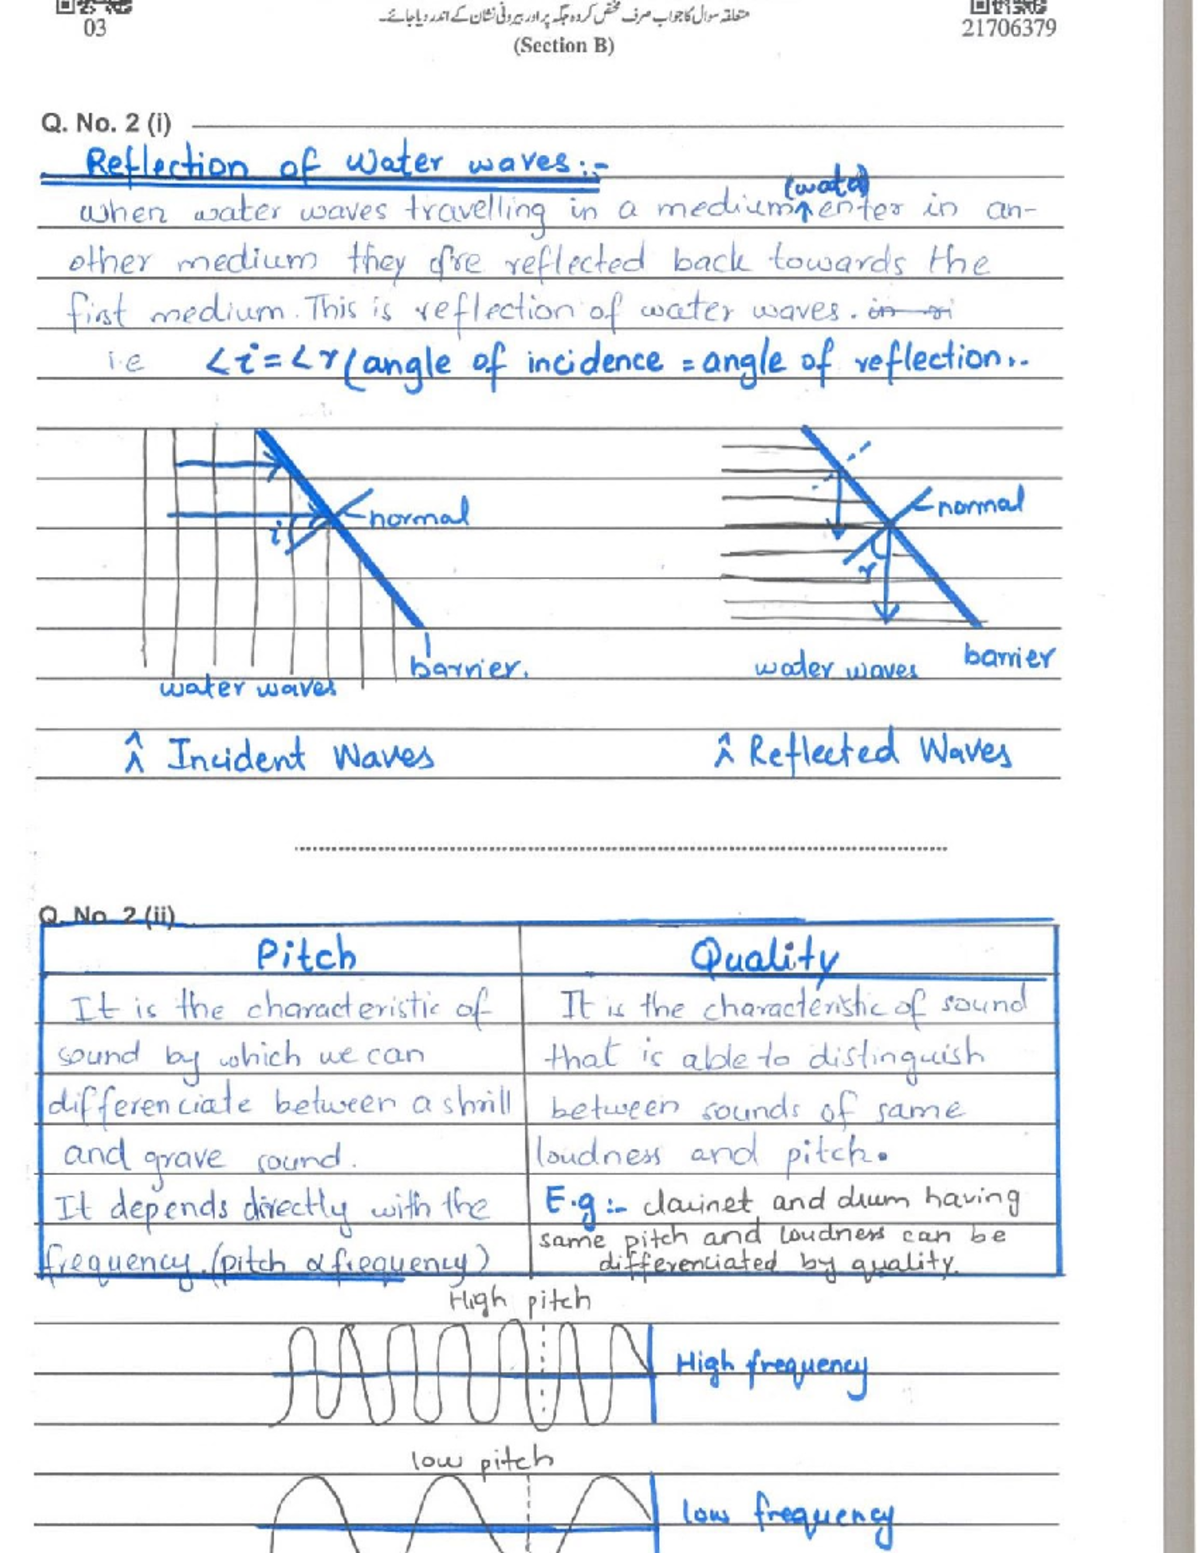 03
متعلقہ سوال کا جواب صرف مختص کردہ جگہ پر اور بیرونی نشان کے اندر دیا جائے۔
21706379
(Section B)
Q. No. 2 (i)
Reflection of water waves:-
(water)
when water waves travelling in a medium enter in an-
other medium they are reflected back towards the
first medium. This is reflection of water waves.
i.e ∠i = ∠r (angle of incidence = angle of reflection.
normal
normal
i
r
barrier.
barrier
water waves
water waves
Incident Waves
Reflected Waves
Q. No. 2 (ii)
Pitch
Quality
It is the characteristic of
sound by which we can
differenciate between a shrill
and grave sound.
It depends directly with the
frequency. (pitch α frequency)
It is the characteristic of sound
that is able to distinguish
between sounds of same
loudness and pitch.
E.g:- clarinet and drum having
same pitch and loudness can be
differenciated by quality.
High pitch
High frequency
low pitch
low frequency